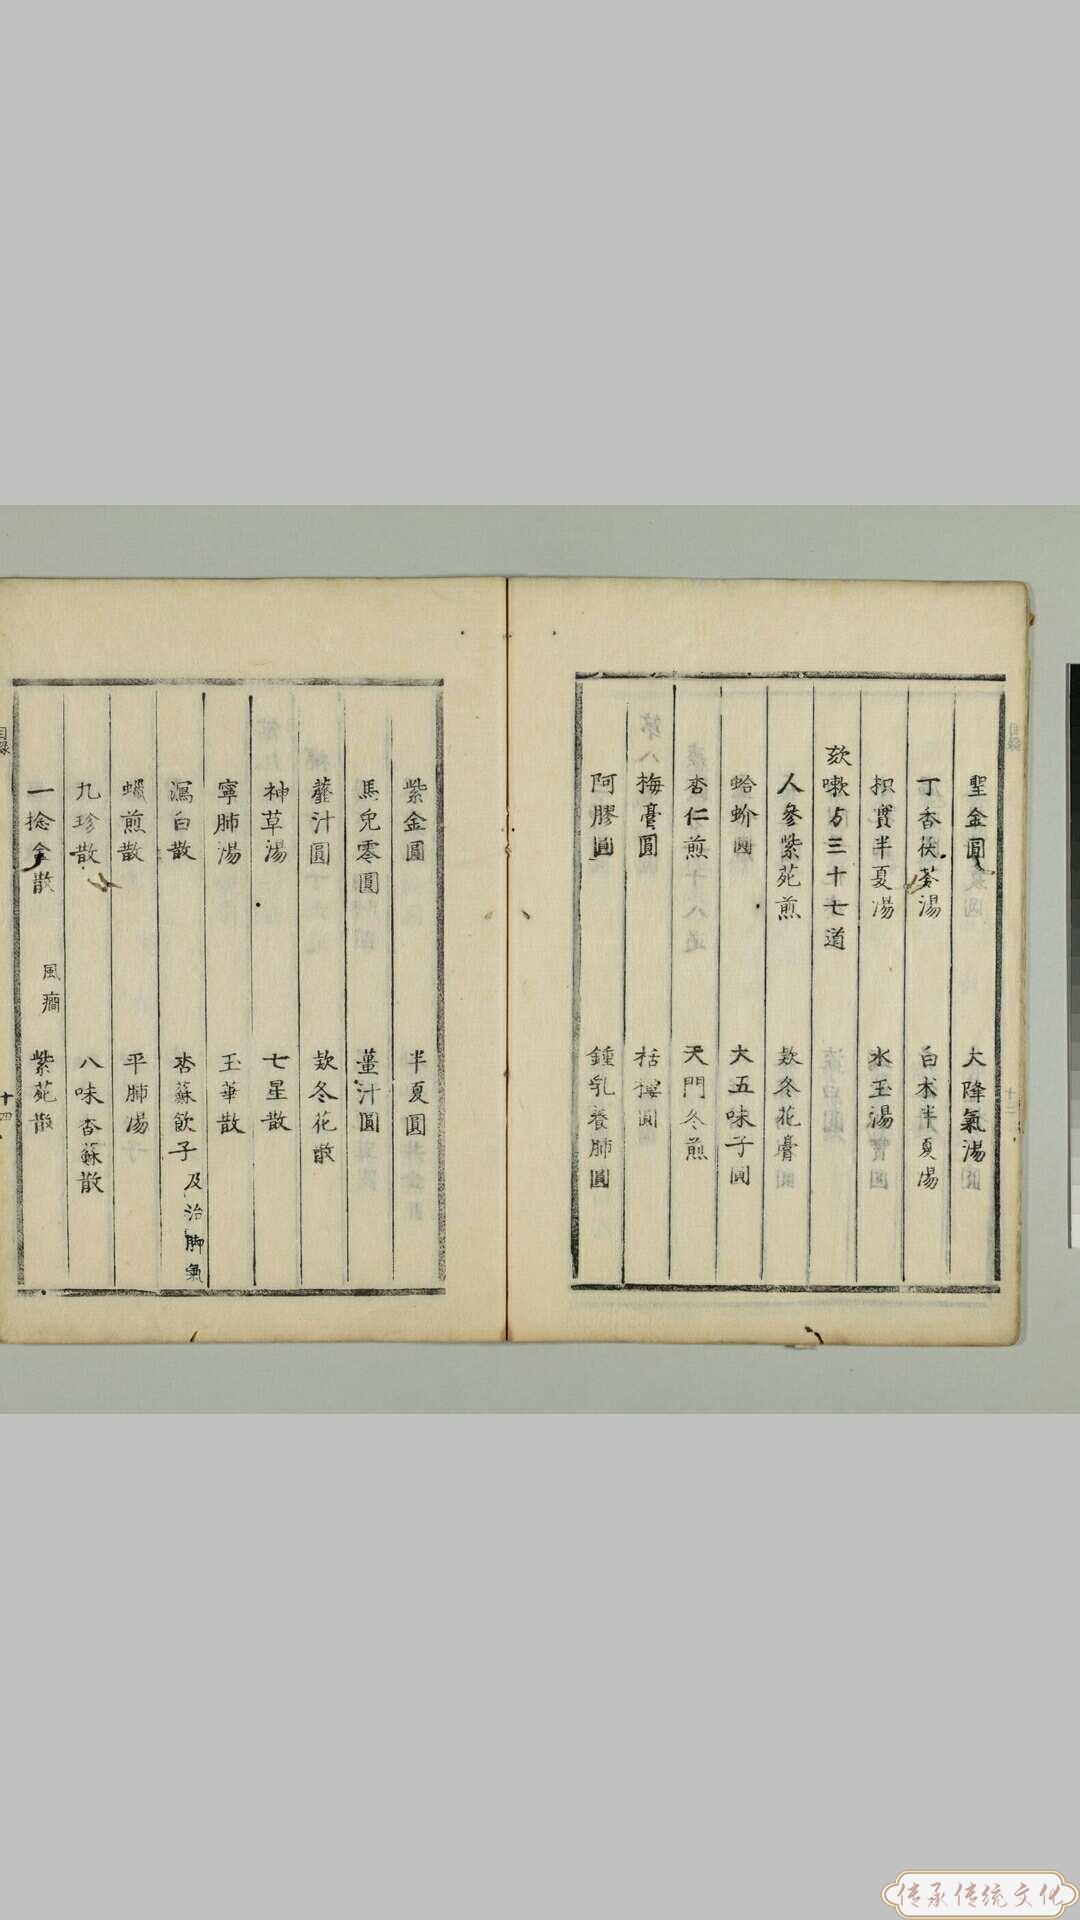 聖金圓 大降氣湯
丁香茯苓湯 白朮半夏湯
枳實半夏湯 水玉湯
欬嗽方三十七道
人參紫菀煎 欵冬花膏
蛤蚧圓 大五味子圓
杏仁煎 天門冬煎
梅膏圓 栝樓圓
阿膠圓 鍾乳養肺圓
紫金圓 半夏圓
馬兜零圓 薑汁圓
薤汁圓 欵冬花散
神草湯 七星散
寧肺湯 玉華散
瀉白散 杏蘇飲子 及治脚氣
蠟煎散 平肺湯
九珍散 八味杏蘇散
一捻金散 風癎 紫菀散
目録
十四
传承传统文化